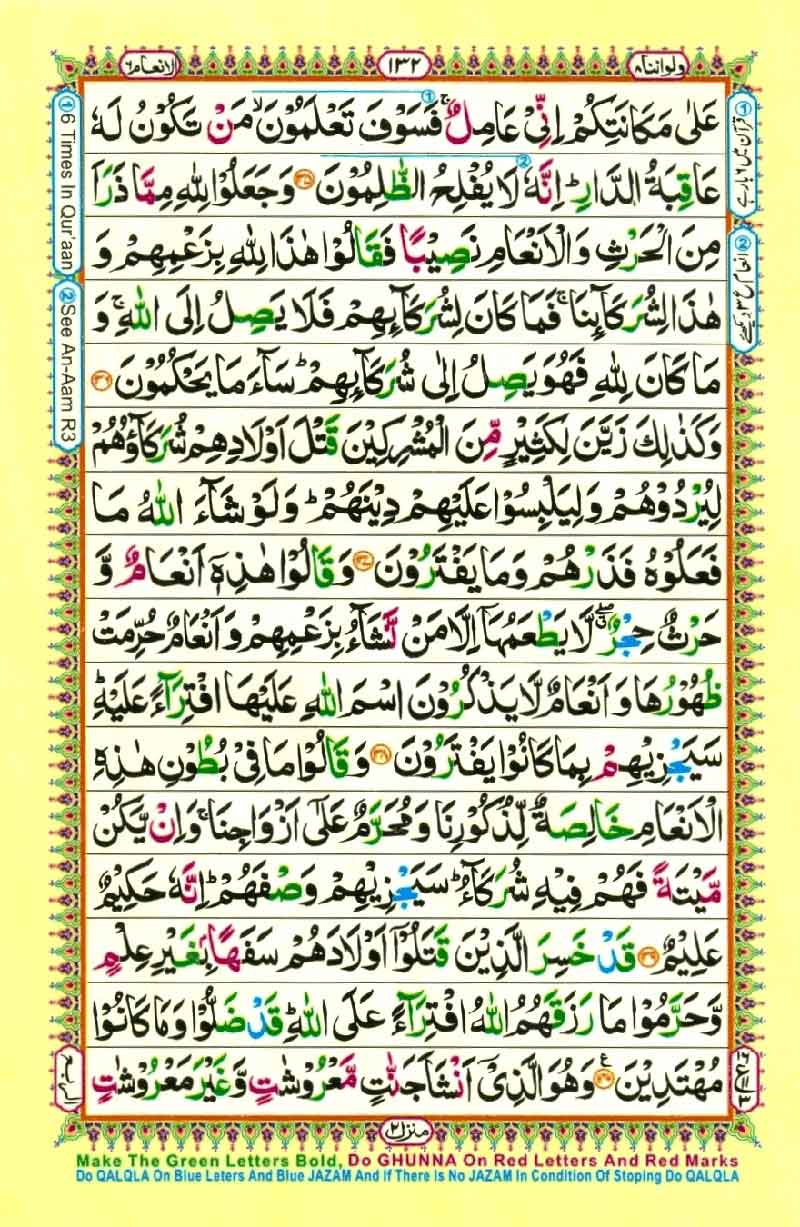 الانعام ٦
١٣٢
ولواننا ٨
عَلٰى مَكَانَتِكُمْ اِنِّیْ عَامِلٌ ۚ فَسَوْفَ تَعْلَمُوْنَ ۙ مَنْ تَكُوْنُ لَهٗ
عَاقِبَةُ الدَّارِ ؕ اِنَّهٗ لَا یُفْلِحُ الظّٰلِمُوْنَ ۝۱۳۵ وَ جَعَلُوْا لِلّٰهِ مِمَّا ذَرَاَ
مِنَ الْحَرْثِ وَ الْاَنْعَامِ نَصِیْبًا فَقَالُوْا هٰذَا لِلّٰهِ بِزَعْمِهِمْ وَ
هٰذَا لِشُرَكَآىِٕنَا ۚ فَمَا كَانَ لِشُرَكَآىِٕهِمْ فَلَا یَصِلُ اِلَى اللّٰهِ ۚ وَ
مَا كَانَ لِلّٰهِ فَهُوَ یَصِلُ اِلٰى شُرَكَآىِٕهِمْ ؕ سَآءَ مَا یَحْكُمُوْنَ ۝۱۳۶
وَ كَذٰلِكَ زَیَّنَ لِكَثِیْرٍ مِّنَ الْمُشْرِكِیْنَ قَتْلَ اَوْلَادِهِمْ شُرَكَآؤُهُمْ
لِیُرْدُوْهُمْ وَ لِیَلْبِسُوْا عَلَیْهِمْ دِیْنَهُمْ ؕ وَ لَوْ شَآءَ اللّٰهُ مَا
فَعَلُوْهُ فَذَرْهُمْ وَ مَا یَفْتَرُوْنَ ۝۱۳۷ وَ قَالُوْا هٰذِهٖۤ اَنْعَامٌ وَّ
حَرْثٌ حِجْرٌ ۖۗ لَّا یَطْعَمُهَاۤ اِلَّا مَنْ نَّشَآءُ بِزَعْمِهِمْ وَ اَنْعَامٌ حُرِّمَتْ
ظُهُوْرُهَا وَ اَنْعَامٌ لَّا یَذْكُرُوْنَ اسْمَ اللّٰهِ عَلَیْهَا افْتِرَآءً عَلَیْهِ ؕ
سَیَجْزِیْهِمْ بِمَا كَانُوْا یَفْتَرُوْنَ ۝۱۳۸ وَ قَالُوْا مَا فِیْ بُطُوْنِ هٰذِهِ
الْاَنْعَامِ خَالِصَةٌ لِّذُكُوْرِنَا وَ مُحَرَّمٌ عَلٰۤى اَزْوَاجِنَا ۚ وَ اِنْ یَّكُنْ
مَّیْتَةً فَهُمْ فِیْهِ شُرَكَآءُ ؕ سَیَجْزِیْهِمْ وَصْفَهُمْ ؕ اِنَّهٗ حَكِیْمٌ
عَلِیْمٌ ۝۱۳۹ قَدْ خَسِرَ الَّذِیْنَ قَتَلُوْۤا اَوْلَادَهُمْ سَفَهًۢا بِغَیْرِ عِلْمٍ
وَّ حَرَّمُوْا مَا رَزَقَهُمُ اللّٰهُ افْتِرَآءً عَلَى اللّٰهِ ؕ قَدْ ضَلُّوْا وَ مَا كَانُوْا
مُهْتَدِیْنَ ۝۱۴۰ ع وَ هُوَ الَّذِیْۤ اَنْشَاَ جَنّٰتٍ مَّعْرُوْشٰتٍ وَّ غَیْرَ مَعْرُوْشٰتٍ
① 6 Times In Qur'aan
② See An-Aam R3
الربع
منزل ٢
Make The Green Letters Bold, Do GHUNNA On Red Letters And Red Marks
Do QALQLA On Blue Leters And Blue JAZAM And If There Is No JAZAM In Condition Of Stoping Do QALQLA